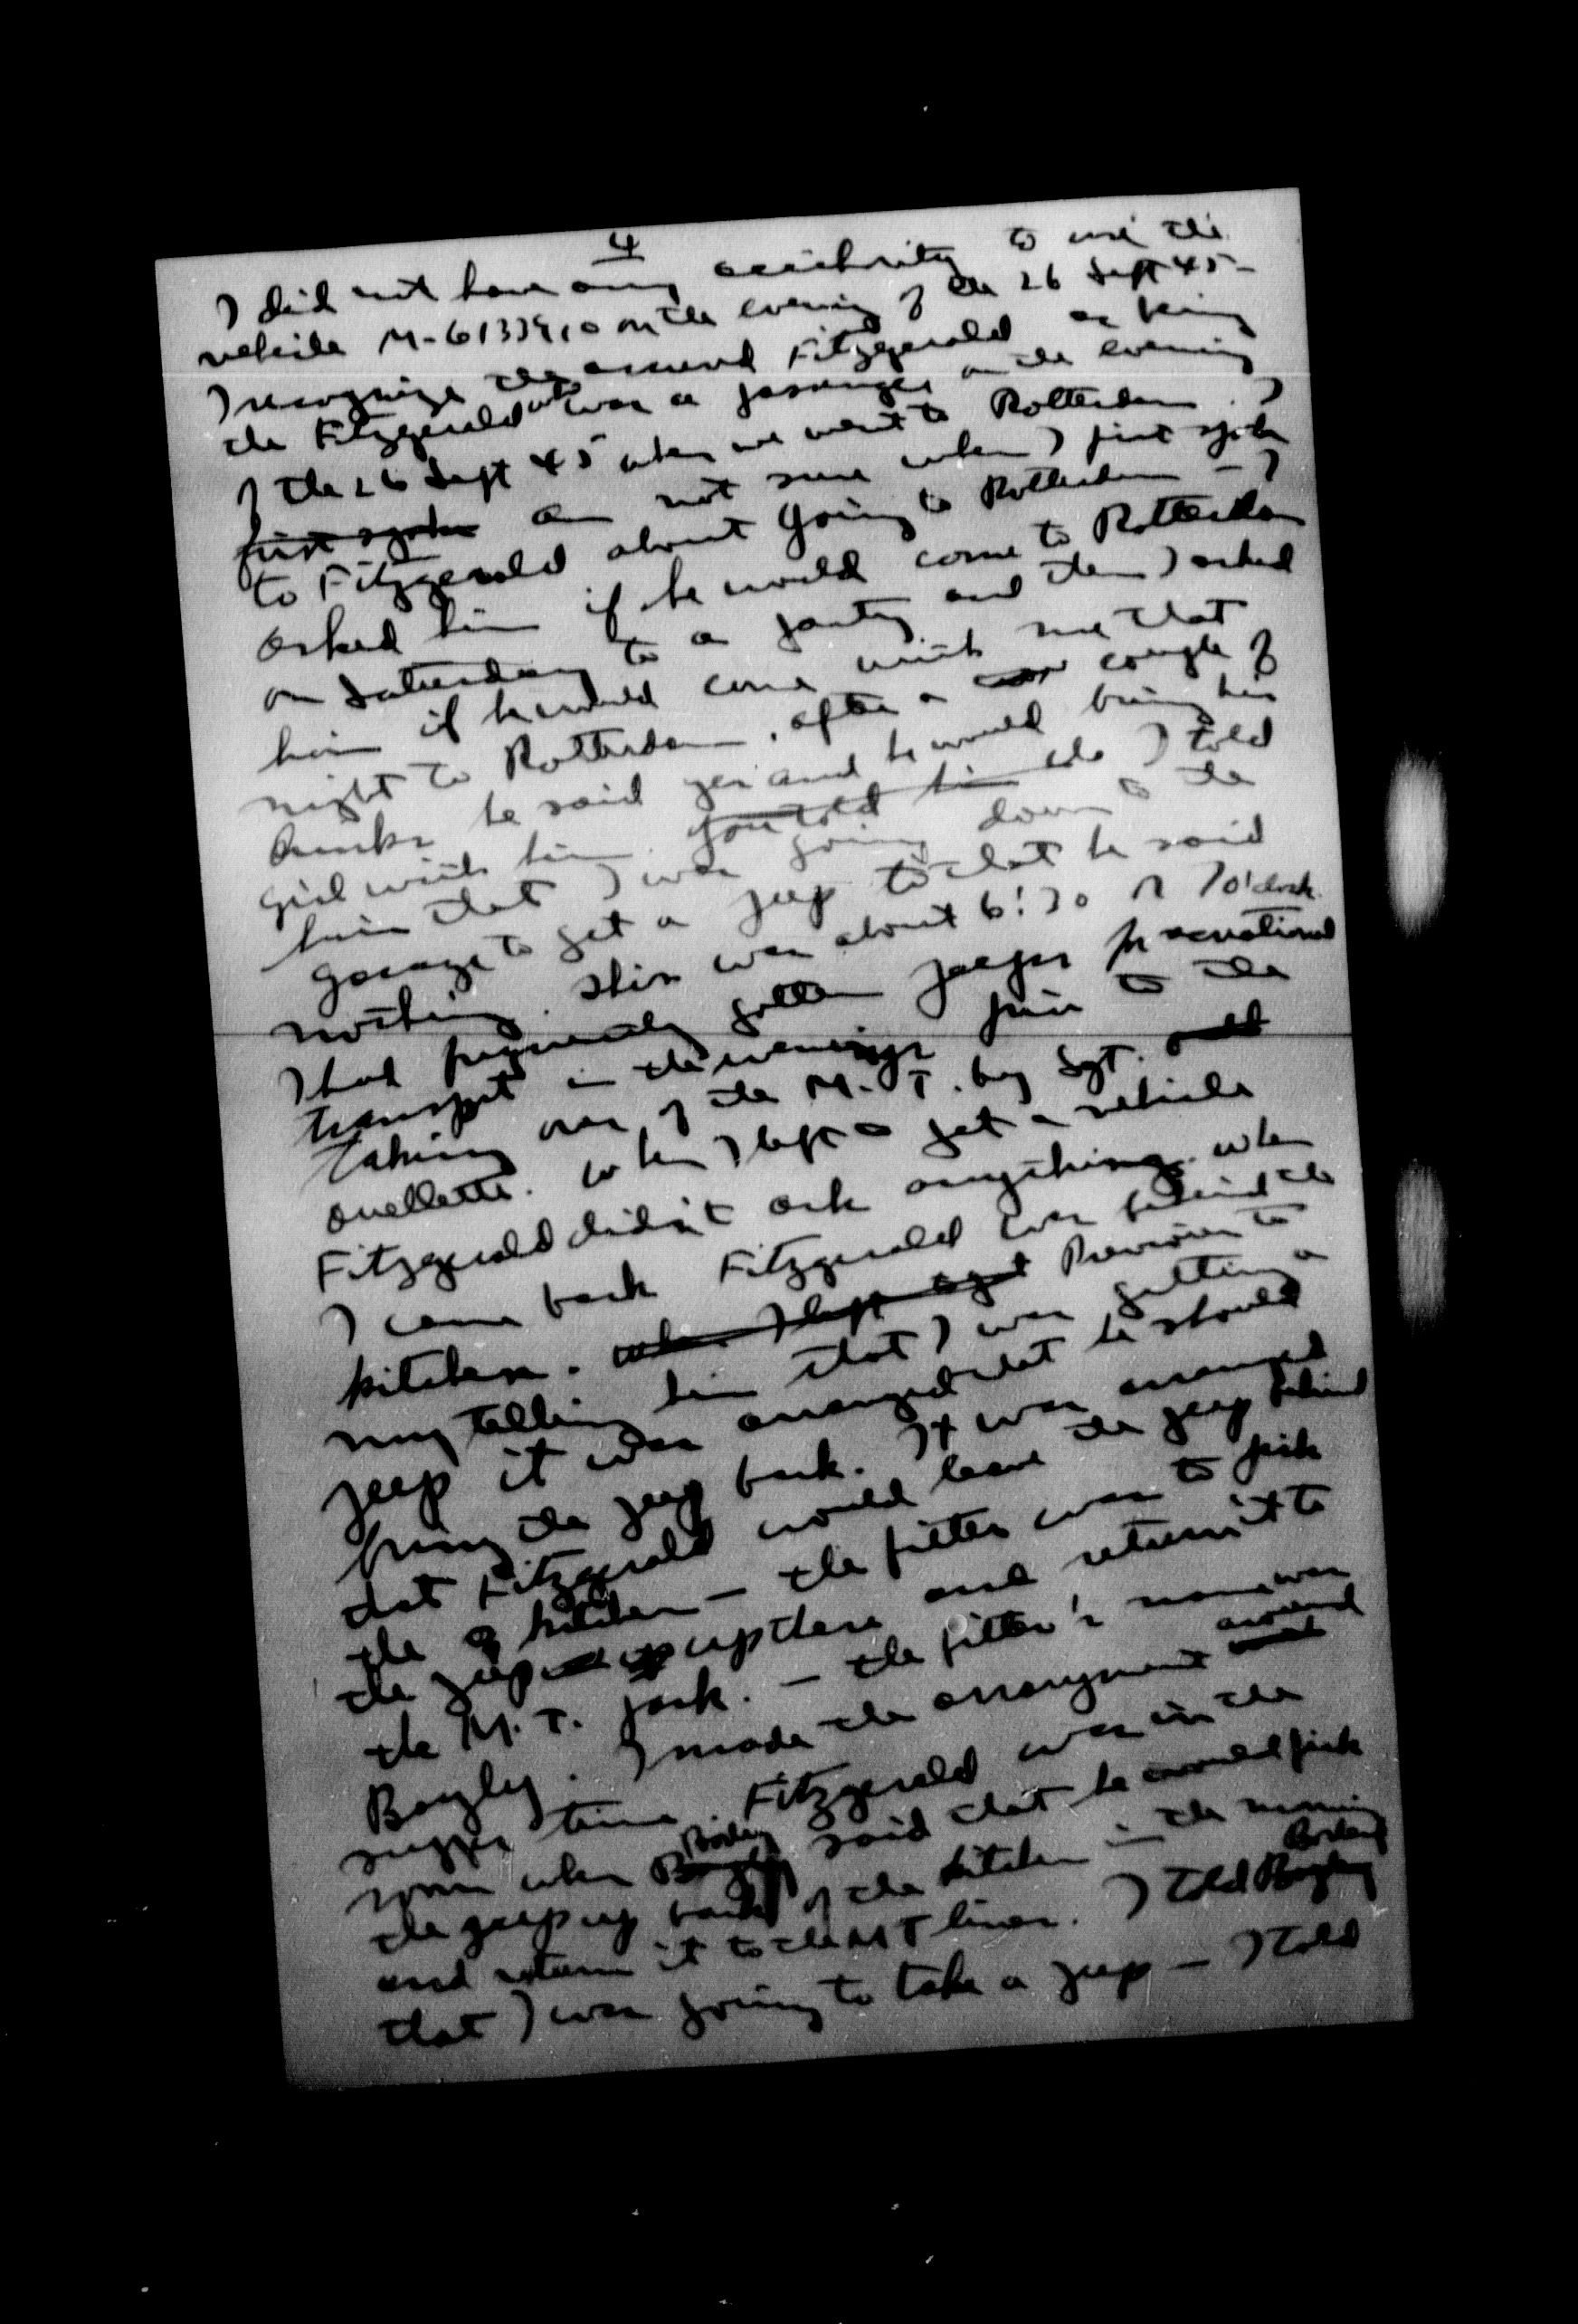 4
I did not have any authority to use the
vehicle M-6133910 on the evening of the 26 Sept 45 -
I recognize the accused Fitzgerald as being
the Fitzgerald who was a passenger on the evening
of the 26 Sept 45 when we went to Rotterdam. I
first spoke am not sure when I first spoke
to Fitzgerald about going to Rotterdam - I
asked him if he would come to Rotterdam
on Saturday to a party and then I asked
him if he would come with me that
night to Rotterdam, after a couple of
drinks he said yes and he would bring his
girl with him. You told him I told
him that I was going down to the
garage to get a jeep to that he said
nothing. This was about 6:30 or 7 o'clock.
I had frequently gotten jeeps for recreational
transport in the evenings prior to the
taking over of the M.T. by Sgt.
Ouellette. When I left to get a vehicle
Fitzgerald didn't ask anything. When
I came back Fitzgerald was behind the
kitchen. when I left to get Previous to
my telling him that I was getting a
jeep it was arranged that he should
bring the jeep back. It was arranged
that Fitzgerald would leave the jeep behind
the kitchen - the fitter was to pick
the jeep up there and return it to
the M.T. park. - the fitter's name was
Bagley. I made the arrangement around
supper time. Fitzgerald was in the
room when said that he would pick
the jeep up back of the kitchen in the morning
and return it to the MT lines. I told
that I was going to take a jeep - I told